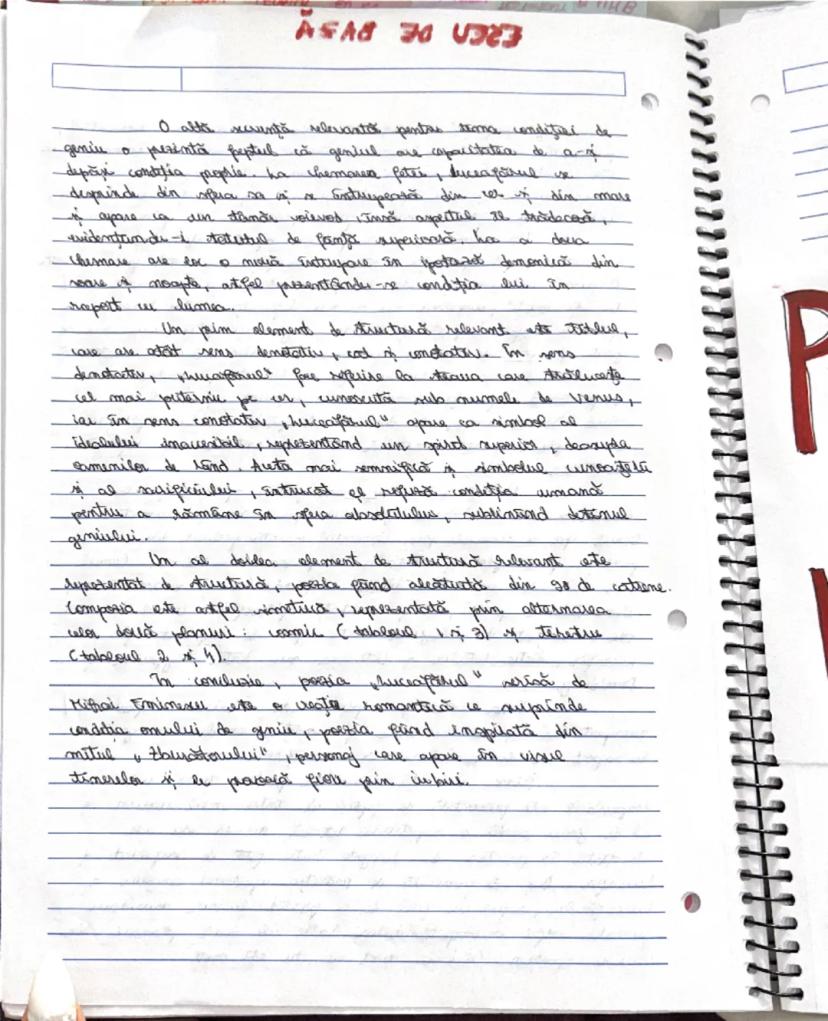 O altă secvență relevantă pentru tema condiției de
geniu o prezintă faptul că geniul are capacitatea de a-și
depăși condiția proprie. La chemarea fetei, Luceafărul se
desprinde din sfera sa și se întrupează din cer și din mare
și apare ca un tânăr voievod, însă aspectul îl trădează,
evidențiandu-i statutul de ființă superioară. La a doua
chemare are loc o nouă întrupare în ipostază demonică din
soare și noapte, astfel prezentându-se condiția lui în
raport cu lumea.
Un prim element de structură relevant este titlul,
care are atât sens denotativ, cât și conotativ. În sens
denotativ, „Luceafărul" face referire la steaua care strălucește
cel mai puternic pe cer, cunoscută sub numele de Venus,
iar în sens conotativ „Luceafărul" apare ca simbol al
idealului inaccesibil, reprezentând un spirit superior, deasupra
oamenilor de rând. Acesta mai semnifică și simbolul cunoașterii
și al sacrificiului, întrucât el refuză condiția umană
pentru a rămâne în sfera absolutului, subliniind destinul
geniului.
Un al doilea element de structură relevant este
reprezentat de structură, poezia fiind alcătuită din 98 de catrene.
Compoziția este astfel simetrică, reprezentată prin alternarea
celor două planuri: cosmic (tabloul 1 și 3) și terestru
(tabloul 2 și 4).
În concluzie, poezia „Luceafărul" scrisă de
Mihai Eminescu este o creație romantică ce surprinde
condiția omului de geniu, poezia fiind inspirată din
mitul „Zburătorului", personaj care apare în visul
tinerelor și le provoacă fiori prin iubiri.